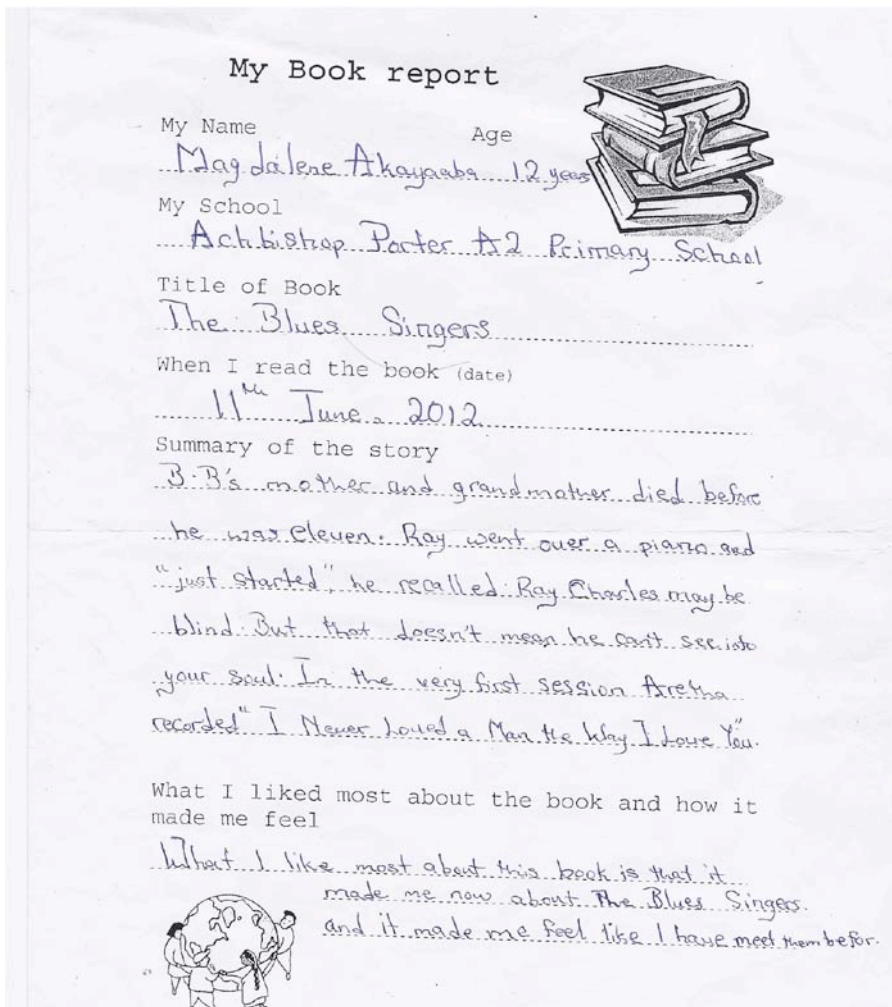 My Book report
My Name Age
Magdalene Akayaaba 12 years
My School
Achbishop Porter A2 Primary School
Title of Book
The Blues Singers
When I read the book (date)
11th June. 2012
Summary of the story
B.B's mother and grandmother died before
he was eleven. Ray went over a piano and
"just started", he recalled. Ray Charles may be
blind. But that doesn't mean he can't see into
your soul. In the very first session Aretha
recorded "I Never Loved a Man the Way I Love You".
What I liked most about the book and how it
made me feel
What I like most about this book is that it
made me now about The Blues Singers.
and it made me feel like I have meet them befor.